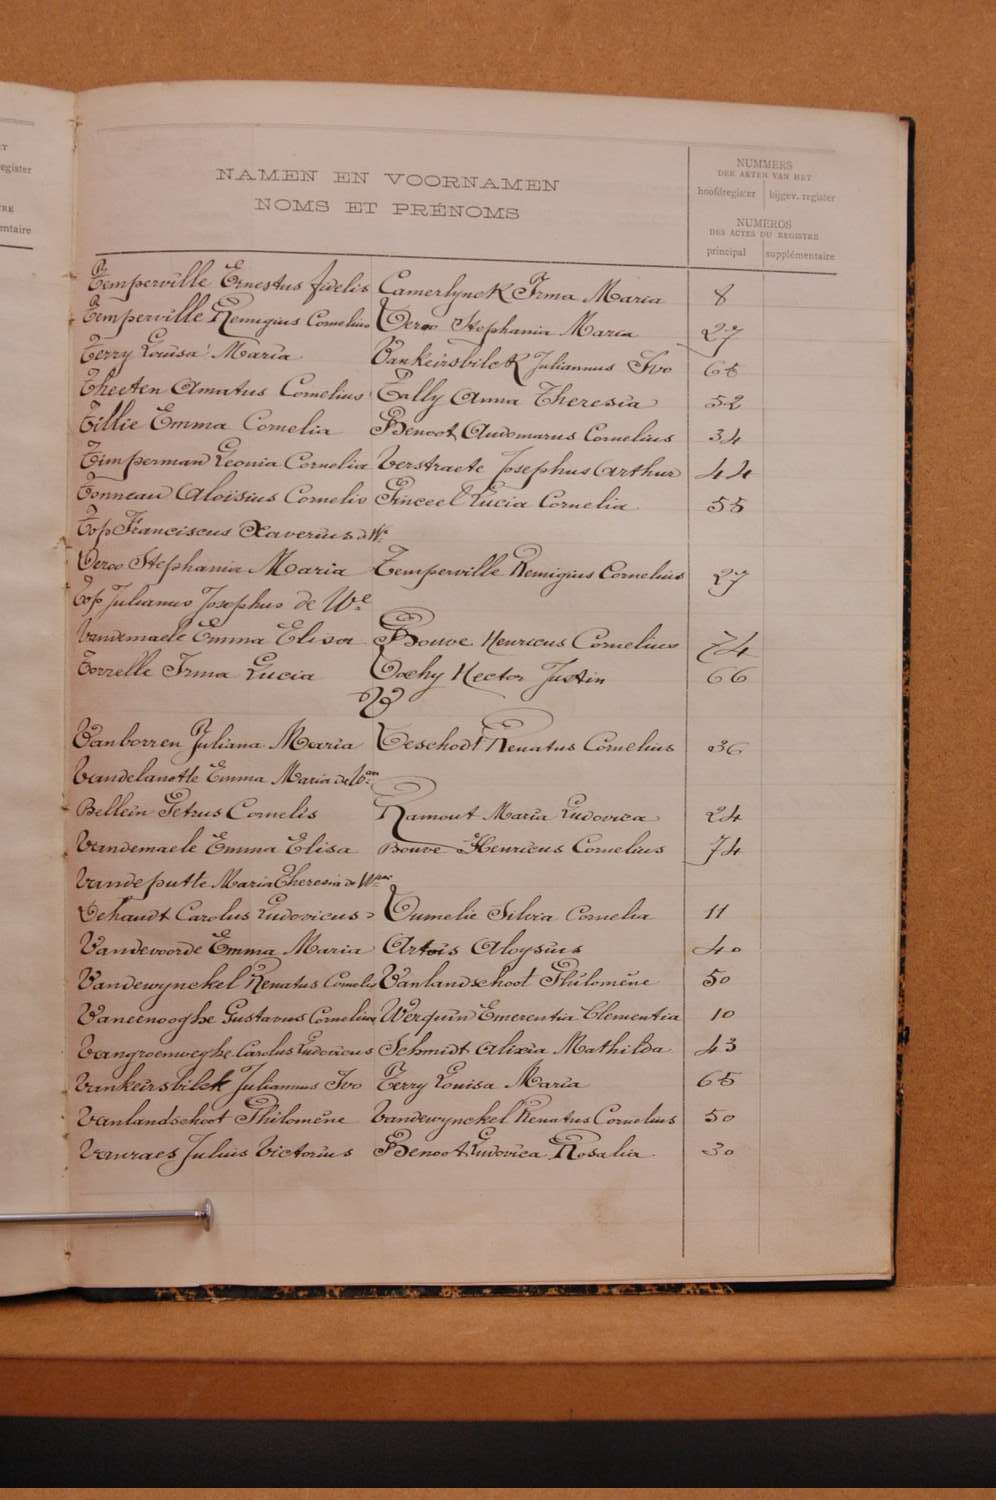 ET
register
TRE
entaire
NAMEN EN VOORNAMEN
NOMS ET PRÉNOMS
NUMMERS
DER AKTEN VAN HET
hoofdregister bijgev. register
NUMEROS
DES ACTES DU REGISTRE
principal supplémentaire
Temperville Ernestus fidelis Camerlynck Irma Maria 8
Temperville Remigius Cornelius Deroo Stephania Maria 27
Terry Louisa Maria Vankeirsbilck Juliannus Ivo 65
Theeten Amatus Cornelius Tally Anna Theresia 52
Tillie Emma Cornelia Benoot Audomarus Cornelius 34
Timperman Leonia Cornelia Verstraete Josephus Arthur 44
Tonneau Aloisius Cornelio Pinceel Lucia Cornelia 55
Top Franciscus Xaverius d We
Deroo Stephania Maria Temperville Remigius Cornelius 27
Top Julianus Josephus de We
Vandemaele Emma Elisa Bouve Henricus Cornelius 74
Torrelle Irma Lucia Dochy Hector Justin 66
V
Vanborren Juliana Maria Deschodt Renatus Cornelius 36
Vandelanotte Emma Maria de Wan
Bellein Petrus Cornelis Ramout Maria Ludovica 24
Vandemaele Emma Elisa Bouve Henricus Cornelius 74
Vandeputte Maria Theresia de
Dehaudt Carolus Ludovicus Dumelie Silvia Cornelia 11
Vandevoorde Emma Maria Artois Aloysius 40
Vandewynckel Renatus Cornelis Vanlandschoot Philomène 50
Vaneenooghe Gustavus Cornelius Werquin Emerentia Clementia 10
Vangroenweghe Carolus Ludovicus Schmidt Alixia Mathilda 43
Vankeirsbilck Juliannus Ivo Terry Louisa Maria 65
Vanlandschoot Philomène Vandewynckel Renatus Cornelius 50
Vanraes Julius Victorius Benoot Ludovica Rosalia 30